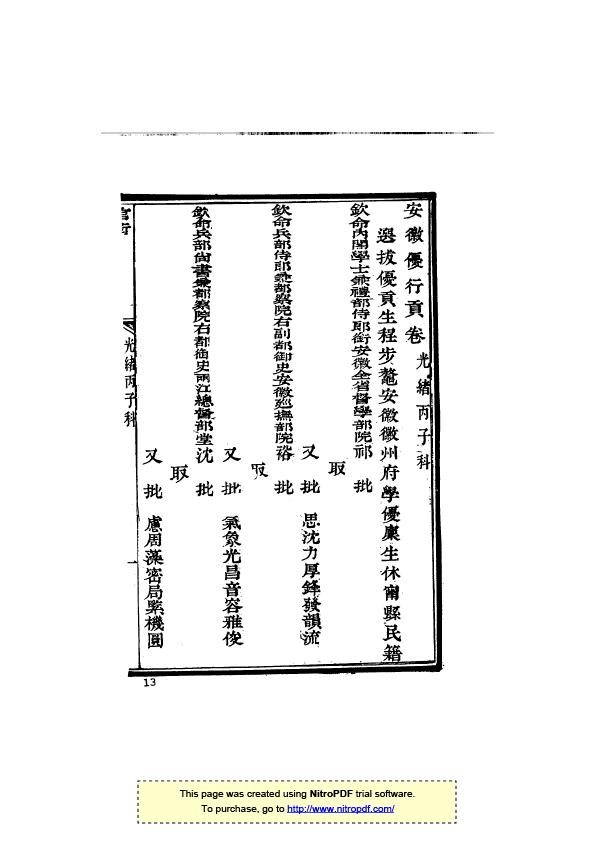 安徽優行貢卷 光緒丙子科
選拔優貢生程步鼇安徽徽州府學優廩生休甯縣民籍
欽命內閣學士兼禮部侍郎銜安徽全省督學部院祁 批
取
又批 思沈力厚鋒發韻流
欽命兵部侍郎兼都察院右副都御史安徽巡撫部院裕 批
取
又批 氣象光昌音容雅俊
欽命兵部尚書兼都察院右都御史兩江總督部堂沈 批
取
又批 慮周藻密局緊機圓
光緒丙子科
一
13
This page was created using NitroPDF trial software.
To purchase, go to http://www.nitropdf.com/